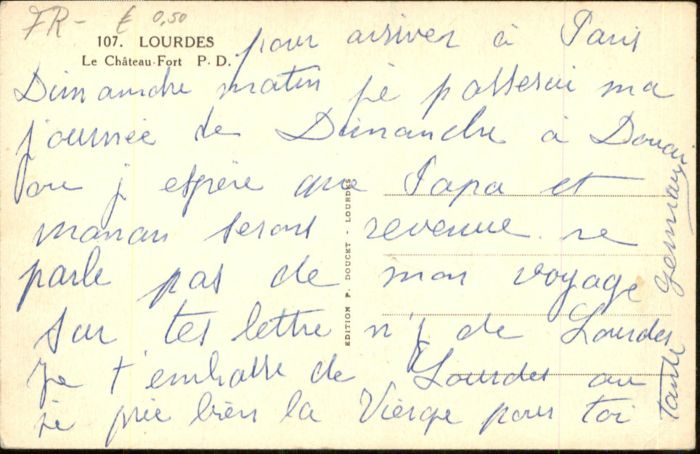 FR - £ 0,50
107. LOURDES
Le Château-Fort P. D.
pour arriver à Paris
Dimanche matin je passerai ma
journée de Dimanche à Douai
ou j espère que Papa et
maman seront revenue. ne
parle pas de mon voyage
sur tes lettre n'j de Lourdes
Je t'embrasse de Lourdes ou
je prie bien la Vierge pour toi
tante Germaine
EDITION P. DOUCET - LOURDES